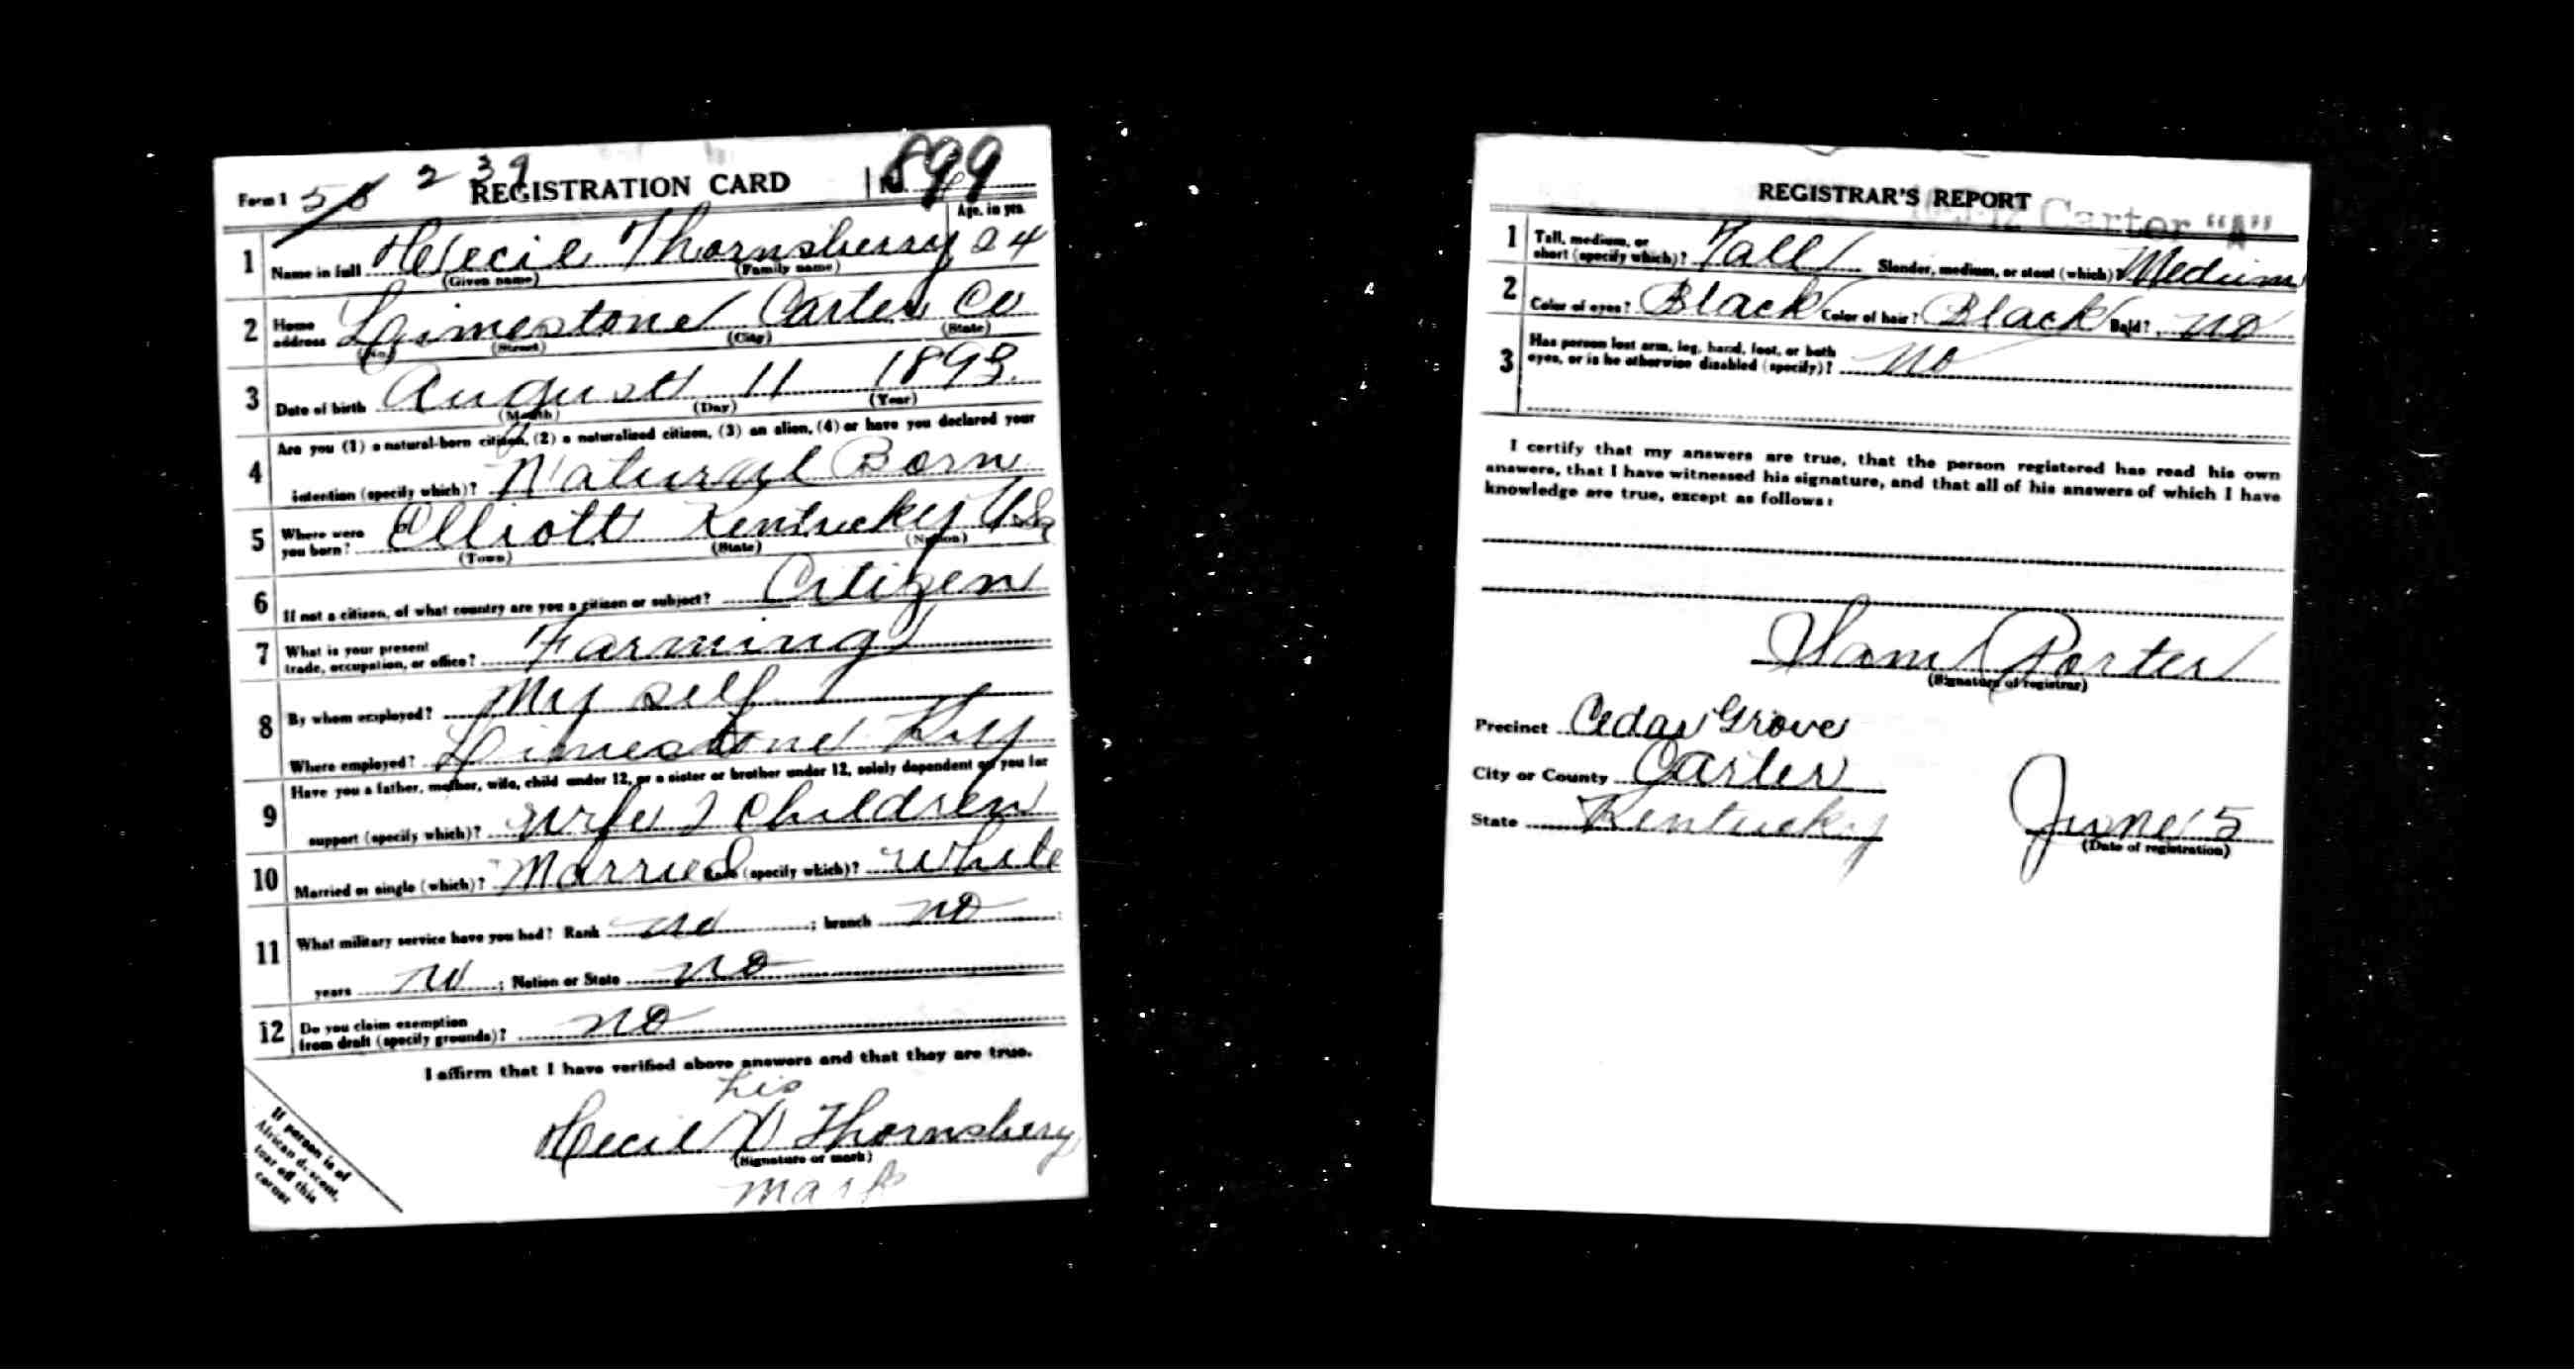 239
Form 1 58 REGISTRATION CARD No. 899
Age, in yrs.
1 Name in full Hecil Thornsberry 24
(Given name) (Family name)
2 Home address Limestone Carter Co
(No.) (Street) (City) (State)
3 Date of birth August 11 1893
(Month) (Day) (Year)
4 Are you (1) a natural-born citizen, (2) a naturalized citizen, (3) an alien, (4) or have you declared your
intention (specify which)? Natural Born
5 Where were you born? Elliott Kentucky
(Town) (State) (Nation)
6 If not a citizen, of what country are you a citizen or subject? Citizen
7 What is your present trade, occupation, or office? Farming
8 By whom employed? My self
Where employed? Limestone Ky
9 Have you a father, mother, wife, child under 12, or a sister or brother under 12, solely dependent on you for
support (specify which)? Wife 2 children
10 Married or single (which)? Married Race (specify which)? White
11 What military service have you had? Rank no ; branch no ;
years no ; Nation or State no
12 Do you claim exemption from draft (specify grounds)? no
I affirm that I have verified above answers and that they are true.
his
Hecil X Thornsbery
(Signature or mark)
mark
If person is of
African descent,
tear off this
corner
REGISTRAR'S REPORT
Carter "A"
1 Tall, medium, or short (specify which)? Tall Slender, medium, or stout (which)? Medium
2 Color of eyes? Black Color of hair? Black Bald? no
3 Has person lost arm, leg, hand, foot, or both
eyes, or is he otherwise disabled (specify)? no
I certify that my answers are true, that the person registered has read his own
answers, that I have witnessed his signature, and that all of his answers of which I have
knowledge are true, except as follows:
Sam Porter
(Signature of registrar)
Precinct Cedar Grove
City or County Carter
State Kentucky June 5
(Date of registration)